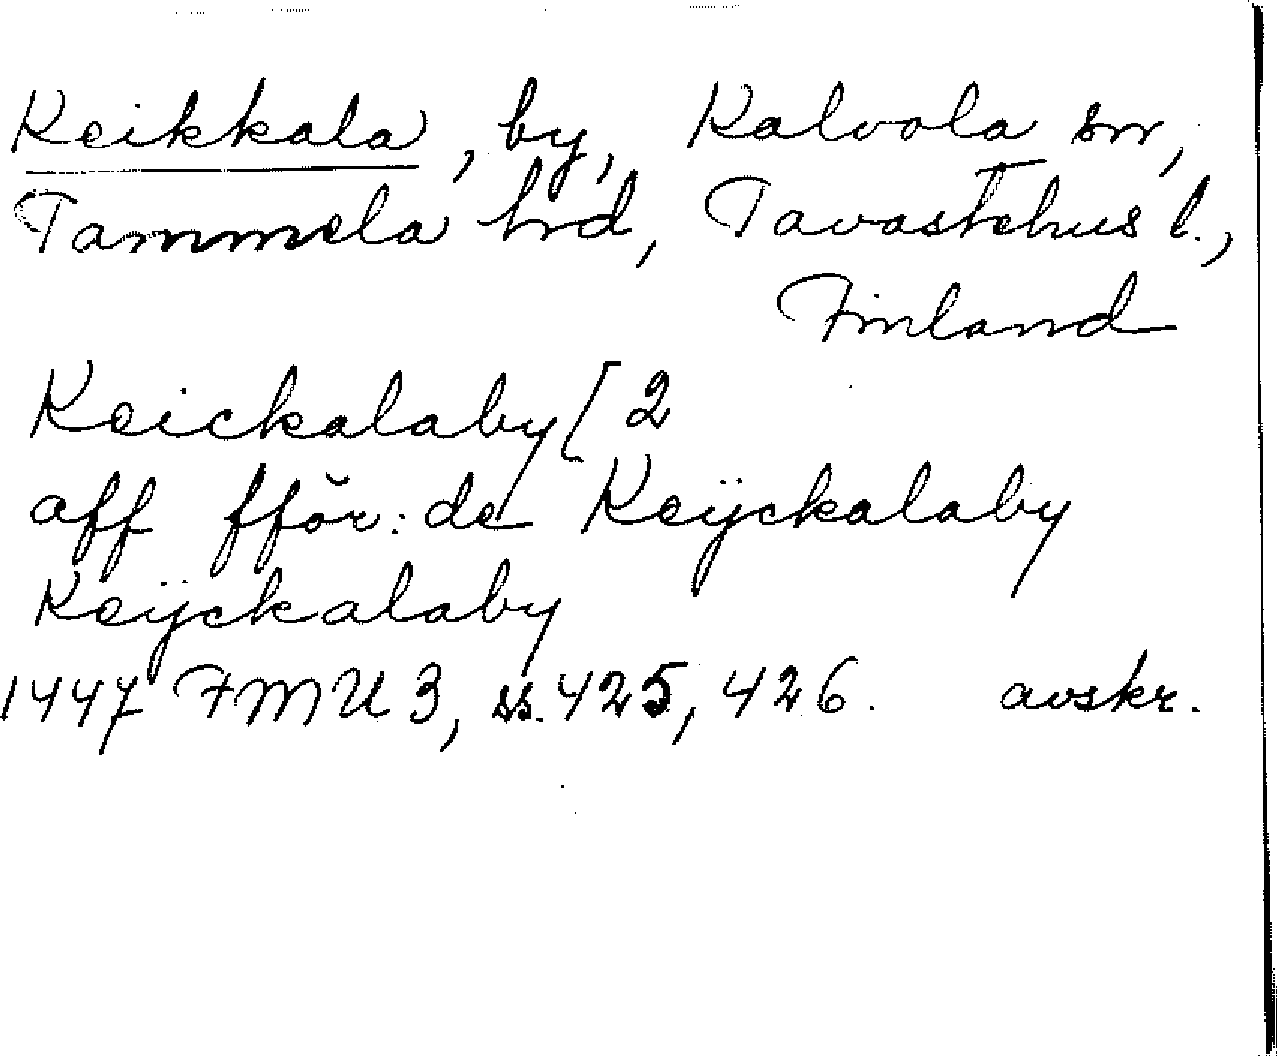 Keikkala, by, Kalvola sn,
Tammela hrd, Tavastehus l.,
Finland
Keickalaby [2
aff fför: de Keÿckalaby
Keÿckalaby
1447 FMU 3, ss. 425, 426. avskr.